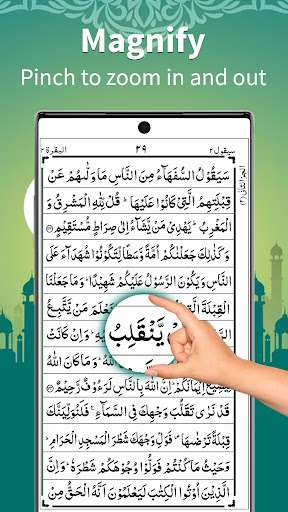 Magnify
Pinch to zoom in and out
سيقول ٢ ٢٩ البقرة ٢
سَيَقُوْلُ السُّفَهَآءُ مِنَ النَّاسِ مَا وَلّٰىهُمْ عَنْ
قِبْلَتِهِمُ الَّتِيْ كَانُوْا عَلَيْهَا ؕ قُلْ لِّلّٰهِ الْمَشْرِقُ وَ
الْمَغْرِبُ ؕ يَهْدِيْ مَنْ يَّشَآءُ اِلٰى صِرَاطٍ مُّسْتَقِيْمٍ
وَكَذٰلِكَ جَعَلْنٰكُمْ اُمَّةً وَّسَطًا لِّتَكُوْنُوْا شُهَدَآءَ عَلَى
النَّاسِ وَيَكُوْنَ الرَّسُوْلُ عَلَيْكُمْ شَهِيْدًا ؕ وَمَا جَعَلْنَا
الْقِبْلَةَ الَّتِيْ مَنْ يَّتَّبِعُ
يَّنْقَلِبُ
وَاِنْ كَانَتْ
كَانَ اللّٰهُ
لِيُضِيْعَ اِيْمَانَكُمْ ؕ اِنَّ اللّٰهَ بِالنَّاسِ لَرَءُوْفٌ رَّحِيْمٌ
قَدْ نَرٰى تَقَلُّبَ وَجْهِكَ فِي السَّمَآءِ ۚ فَلَنُوَلِّيَنَّكَ
قِبْلَةً تَرْضٰىهَا ۪ فَوَلِّ وَجْهَكَ شَطْرَ الْمَسْجِدِ الْحَرَامِ ؕ
وَحَيْثُ مَا كُنْتُمْ فَوَلُّوْا وُجُوْهَكُمْ شَطْرَهٗ ؕ وَاِنَّ
الَّذِيْنَ اُوْتُوا الْكِتٰبَ لَيَعْلَمُوْنَ اَنَّهُ الْحَقُّ مِنْ